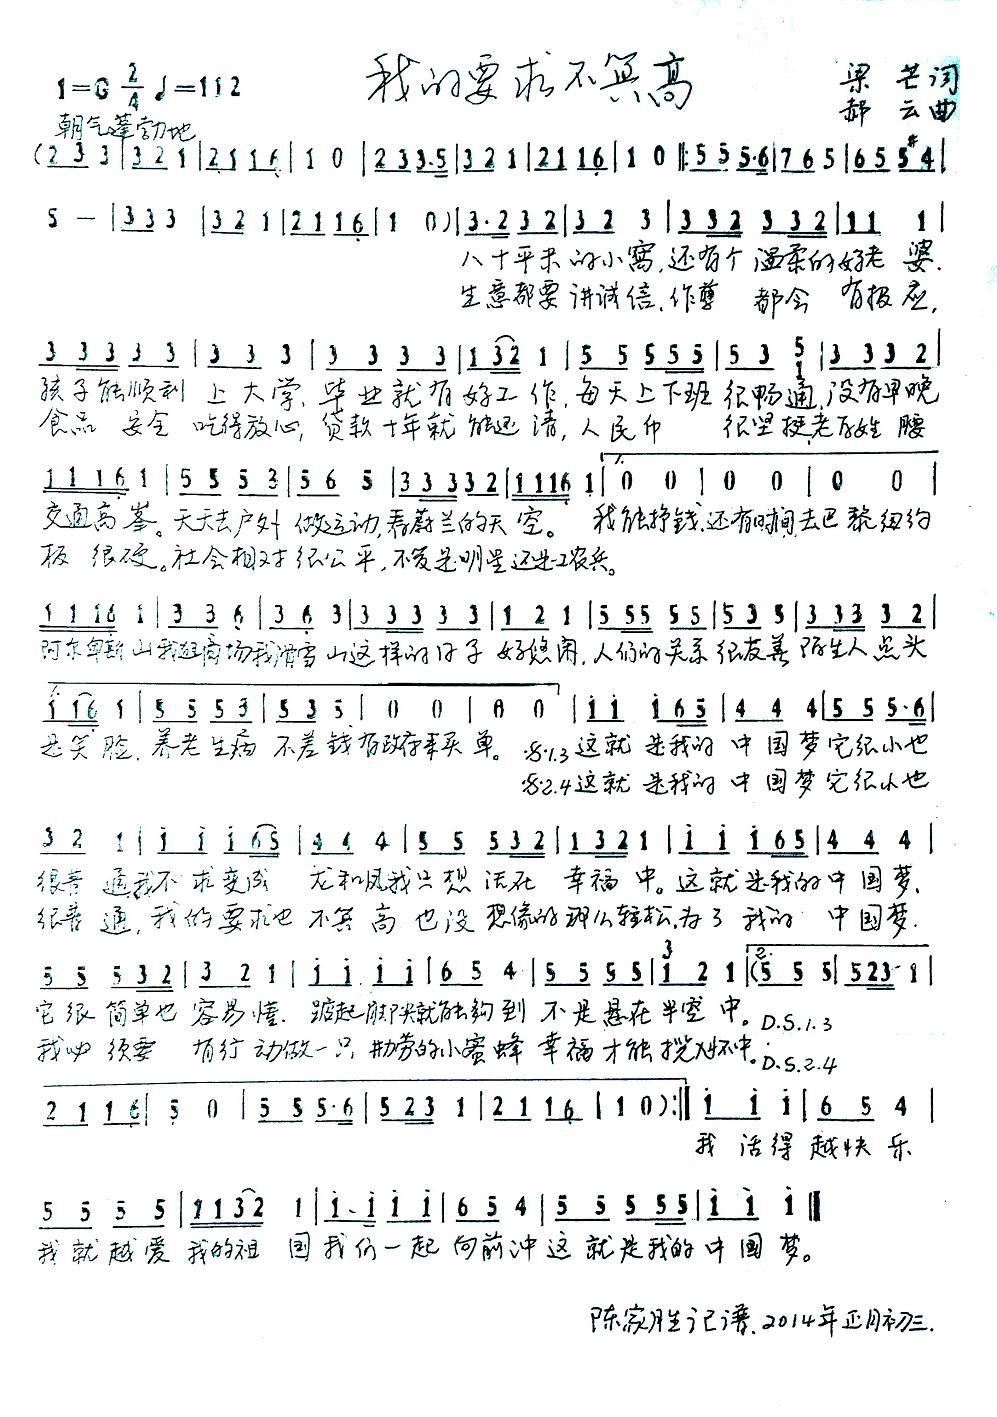 我的要求不算高
1=G 2/4 ♩=112
梁芒词
郝云曲
朝气蓬勃地
(2 3 3 | 3 2 1 | 2 1 1 6 | 1 0 | 2 3 3·5 | 3 2 1 | 2 1 1 6 | 1 0 |: 5 5 5·6 | 7 6 5 | 6 5 5 #4 |
5 — | 3 3 3 | 3 2 1 | 2 1 1 6 | 1 0) | 3·2 3 2 | 3 2 3 | 3 3 2 3 3 2 | 1 1 1 |
八十平米的小窝,还有个温柔的好老婆.
生意都要讲诚信,作孽都会有报应,
3 3 3 3 3 | 3 3 3 | 3 3 3 3 | 1 3 2 1 | 5 5 5 5 5 | 5 3 5 1 | 3 3 3 2 |
孩子能顺利上大学,毕业就有好工作,每天上下班很畅通,没有早晚
食品安全吃得放心,贷款十年就能还清,人民币很坚挺,老百姓腰
1 1 1 6 1 | 5 5 5 3 | 5 6 5 | 3 3 3 3 2 | 1 1 1 6 1 | 1. 0 0 | 0 0 | 0 0 |
交通高峯。天天去户外做运动,看蔚兰的天空。我能挣钱,还有时间,去巴黎纽约
板很硬。社会相对很公平,不管是明星还是工农兵。
1 1 1 6 1 | 3 3 6 | 3 6 3 | 3 3 3 3 3 | 1 2 1 | 5 5 5 5 5 | 5 3 5 | 3 3 3 3 2 |
阿尔卑斯山我逛商场我滑雪山这样的日子好悠闲,人们的关系很友善陌生人点头
1 1 6 1 | 5 5 5 3 | 5 3 5 | 0 0 | 0 0 | i i i 6 5 | 4 4 4 | 5 5 5·6 |
是笑脸,养老生病不差钱有政府来买单。𝄋1.3这就是我的中国梦它很小也
𝄋2.4这就是我的中国梦它很小也
3 2 1 | i i i 6 5 | 4 4 4 | 5 5 5 3 2 | 1 3 2 1 | i i i 6 5 | 4 4 4 |
很普通我不求变成龙和凤我只想活在幸福中。这就是我的中国梦,
很普通,我的要求也不算高也没想像的那么轻松,为了我的中国梦.
5 5 5 3 2 | 3 2 1 | i i i i | 6 5 4 | 5 5 5 5 | 3 i 2 1 | 2. (5 5 5 | 5 2 3 1 |
它很简单也容易懂.踮起脚尖就能够到不是悬在半空中。D.S.1.3
我必须要有行动做一只勤劳的小蜜蜂幸福才能搅入怀中。D.S.2.4
2 1 1 6 | 5 0 | 5 5 5·6 | 5 2 3 1 | 2 1 1 6 | 1 0) :| i i i | 6 5 4 |
我活得越快乐
5 5 5 5 | 1 1 3 2 1 | i·i i i | 6 5 4 | 5 5 5 5 5 | i i i ‖
我就越爱我的祖国我们一起向前冲这就是我的中国梦。
陈家胜记谱.2014年正月初三.